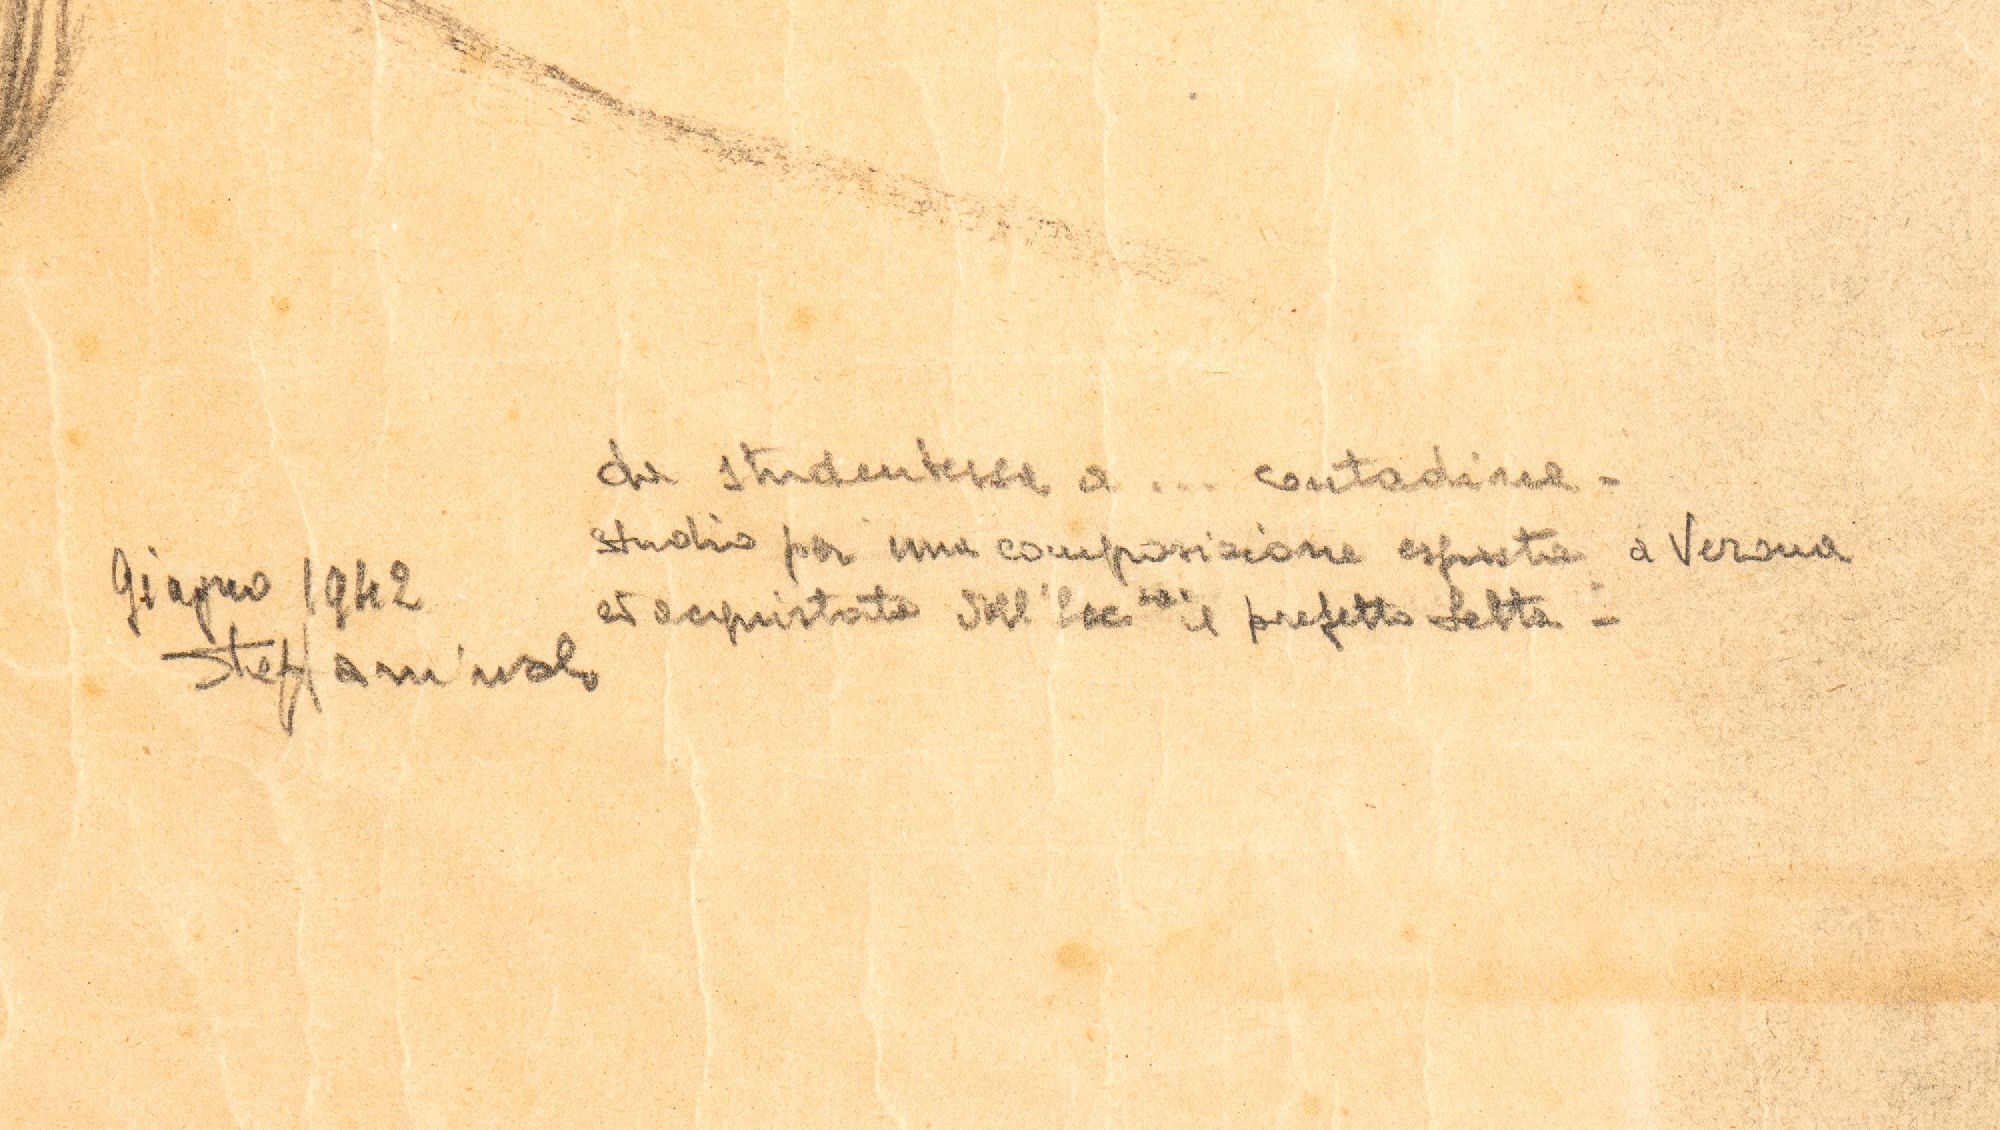 Giugno 1942
da studentessa a ... contadina -
studio per una composizione esposta a Verona
ed acquistata dall' il prefetto